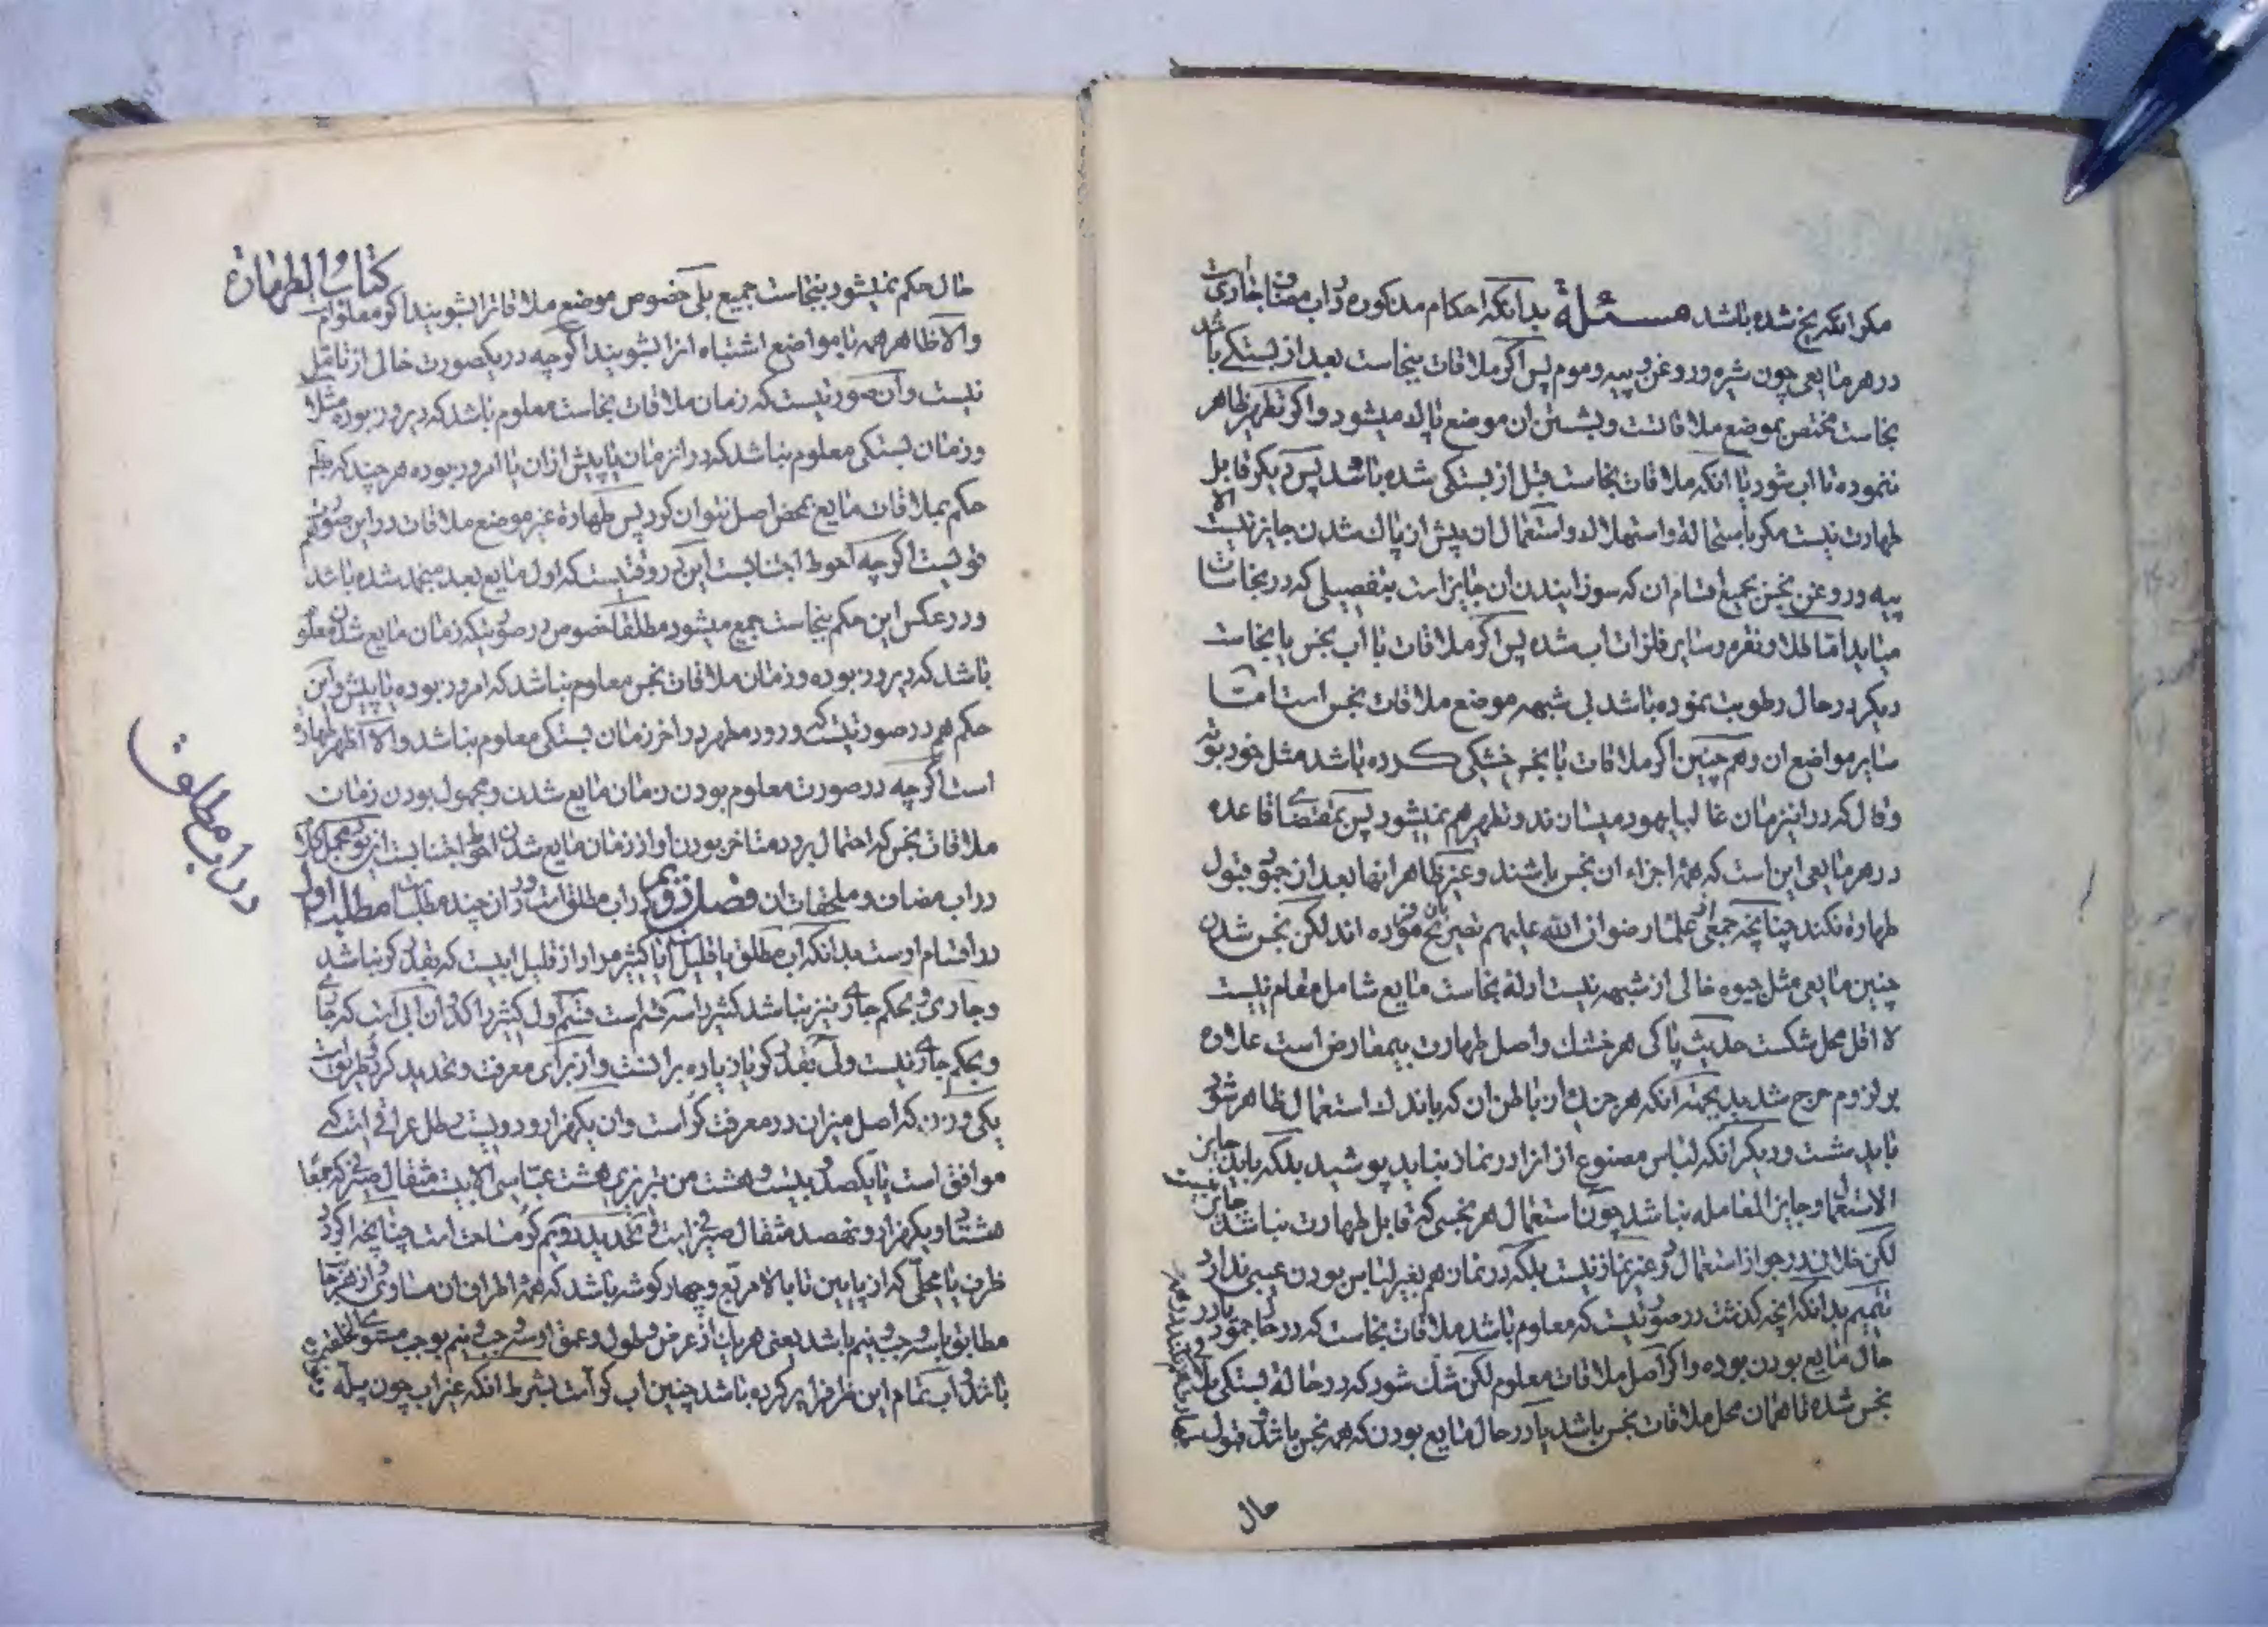 مگر انکه یخ شده باشد مسئلة بدانکه احکام مذکوره در اب مضاف جاریست
در هر مایعی چون شیره و روغن و پیه و موم پس اگر ملاقات بنجاست بعد از بستگی باشد
نجاست مختص بموضع ملاقاتست و بشستن ان موضع پاک میشود و اگر تطهیر ظاهر
ننموده تا اب شود یا انکه ملاقات نجاست قبل از بستگی شده باشد پس دیگر قابل
طهارت نیست مگر باستحاله و استهلاك و استعمال ان پیش از پاك شدن جایز نیست الا
پیه و روغن نجس بجمیع اقسام ان که سوزانیدن ان جایز است بتفصیلی که در نجاسات
میاید اما طلا و نقره و سایر فلزات اب شده پس اگر ملاقات با اب نجس یا نجاست
دیگر در حال رطوبت نموده باشد بی شبهه موضع ملاقات نجس است اما
سایر مواضع ان و همچنین اگر ملاقات با نجس خشکی کرده باشد مثل خود بوته
و قال که در این زمان غالبا یهود میسازند و تطهیر هم نمیشود پس بمقتضای قاعده
در هر مایعی این است که همه اجزاء ان نجس باشند و غیر ظاهر انها بعد از جمود قبول
طهارة نکند چنانچه جمعی از علماء رضوان الله علیهم تصریح بان فرموده اند لکن نجس شدن
چنین مایعی مثل جیوه خالی از شبهه نیست ادله نجاست مایع شامل مقام نیست
لا اقل محل شکست حدیث پاکی هر خشك و اصل طهارت بیمعارض است علاوه
بر لزوم حرج شدید بجهة انکه هر جزء از باطن ان که باندك استعمال ظاهر شود
باید شست و دیگر انکه لباس مصنوع از انرا در نماز نباید پوشید بلکه باید جایز
الاستعمال و جایز المعامله نباشد چون استعمال هر نجسی که قابل طهارت نباشد جایز نیست
لکن خلاف در جواز استعمال در غیر نماز نیست بلکه در نماز هم بغیر لباس بودن عیبی ندارد
تتمیم بدانکه انچه گذشت در صورتیست که معلوم باشد ملاقات نجاست که در حال جمود یا در
حال مایع بودن بوده و اگر اصل ملاقات معلوم لکن شك شود که در حالة بستگی ملاقی
نجس شده تا همان محل ملاقات نجس باشد یا در حال مایع بودن که همه نجس باشد و قبول
حال
کتاب الطهارة
حال حکم نمیشود بنجاست جمیع بلی خصوص موضع ملاقات را بشویند اگر معلوم است
والا ظاهر همه یا مواضع اشتباه انرا بشویند اگرچه در یکصورت خالی از تامل
نیست و آن صورتیست که زمان ملاقات نجاست معلوم باشد که دیروز بوده مثلا
و زمان بستگی معلوم نباشد که در انزمان یا پیش از ان یا امروز بوده هر چند که
حکم بملاقات مایع بمحض اصل نتوان کرد پس طهارة غیر موضع ملاقات در این صورت هم
قویست اگرچه احوط اجتنابست این در وقتیست که اول مایع بعد منجمد شده باشد
و در عکس این حکم بنجاست جمیع میشود مطلقا خصوص در صورتیکه زمان مایع شدن معلوم
باشد که دیروز بوده و زمان ملاقات نجس معلوم نباشد که امروز بوده یا پیش و این
حکم هم در صورتیست که ورود مطهر در اخر زمان بستگی معلوم نباشد والا اظهر طهارة
است اگرچه در صورت معلوم بودن زمان مایع شدن و مجهول بودن زمان
ملاقات نجس که احتمال برود متاخر بودن او از زمان مایع شدن احوط اجتنابست
در اب مضاف و ملحقات ان فصل دویم در اب مطلق است و در ان چند مطلب است مطلب اول
در اقسام اوست بدانکه اب مطلق یا قلیل است یا کثیر مراد از قلیل ابیست که بقدر کر نباشد
و جاری و بحکم جاری نیز نباشد کثیر بر سه قسم است قسم اول کثیر راکد و ان ابی است که جاری
و بحکم جاری نیست ولی بقدر کر یا زیاده بر انست و از برای معرفت و تحدید کر دو طریق است
یکی وزن که اصل میزان در معرفت کر است و ان یکهزار و دویست رطل عراقی است که
موافق است با یکصد و بیست و هشت من تبریزی هشت عباسی الا بیست مثقال صیرفی که جمعا
هشتاد و یکهزار و نهصد مثقال صیرفی است و تحدید دویم کر مساحت است چنانچه اگر در
ظرف یا محلی که از پایین تا بالا مربع و چهار گوشه باشد که همه اطراف ان مساوی و از هر جا
مطابق با سه وجب و نیم باشد یعنی هر یك از عرض و طول و عمق او سه وجب و نیم بوجب مستوی الخلقه
باشد و اب تمام این ظرف را پر کرده باشد چنین اب کر است بشرط انکه غیر اب چون پله
در اب مطلق